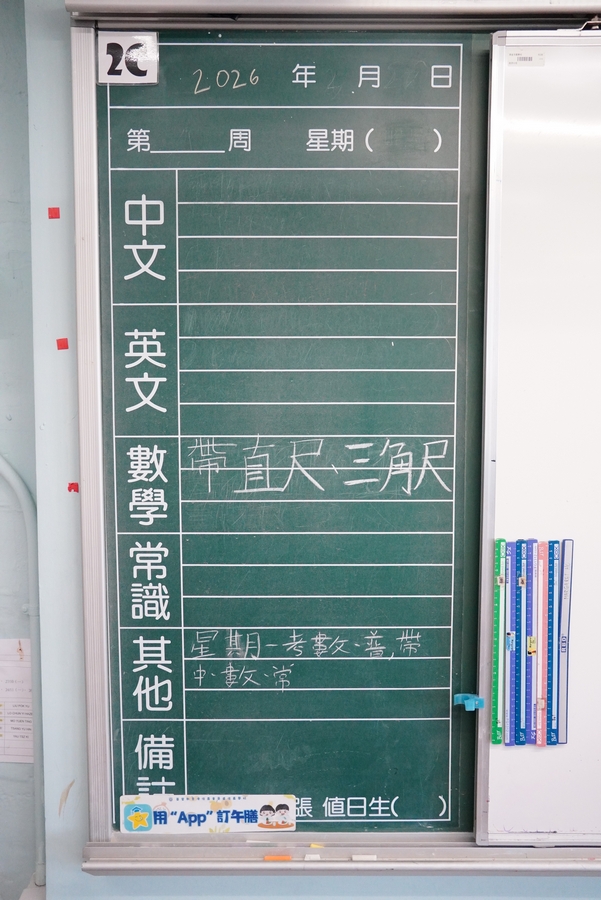 2C
2026 年 月 日
第______周 星期( )
中文
英文
數學
帶直尺、三角尺
常識
其他
星期一考數、普,帶
中、數、常
備註
張 值日生( )
用“App”訂午膳